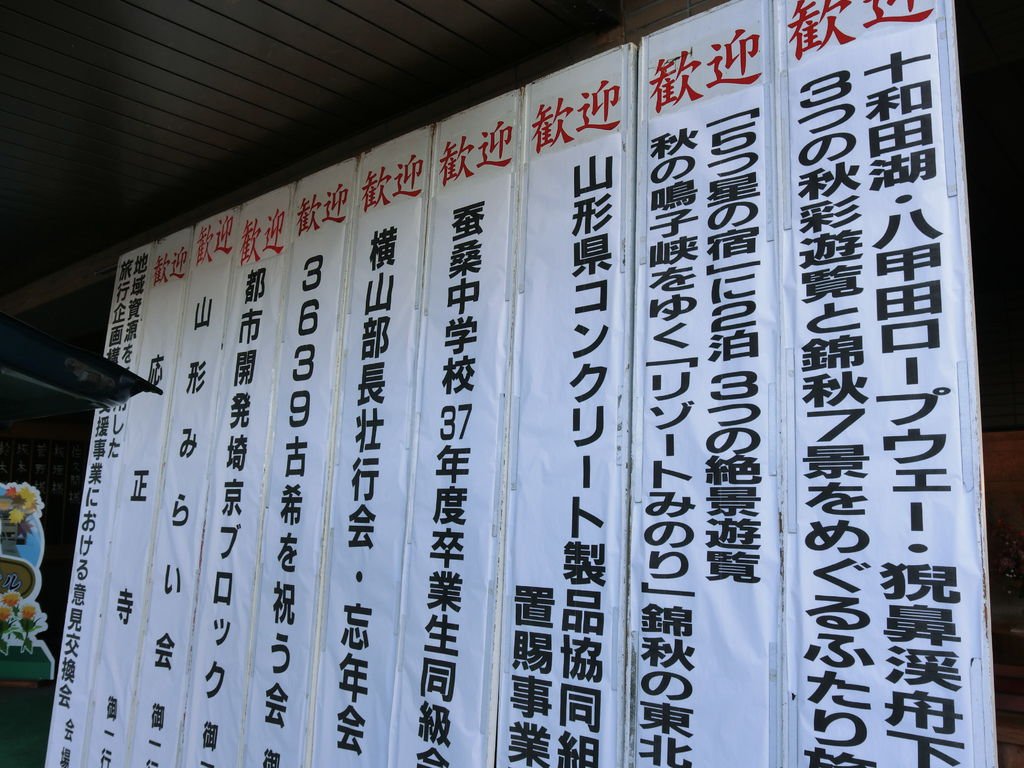 歓迎
十和田湖・八甲田ロープウェー・猊鼻渓舟下
3つの秋彩遊覧と錦秋7景をめぐるふたり旅
歓迎
「5つ星の宿」に2泊 3つの絶景遊覧
秋の鳴子峡をゆく「リゾートみのり」錦秋の東北
歓迎
山形県コンクリート製品協同組
置賜事業
歓迎
蚕桑中学校37年度卒業生同級会
歓迎
横山部長壮行会・忘年会
歓迎
3639古希を祝う会 御
歓迎
都市開発埼京ブロック 御
歓迎
山形みらい会 御一行
歓迎
応正寺 御一行
地域資源を
用した
旅行企画
支援事業における意見交換会 会場